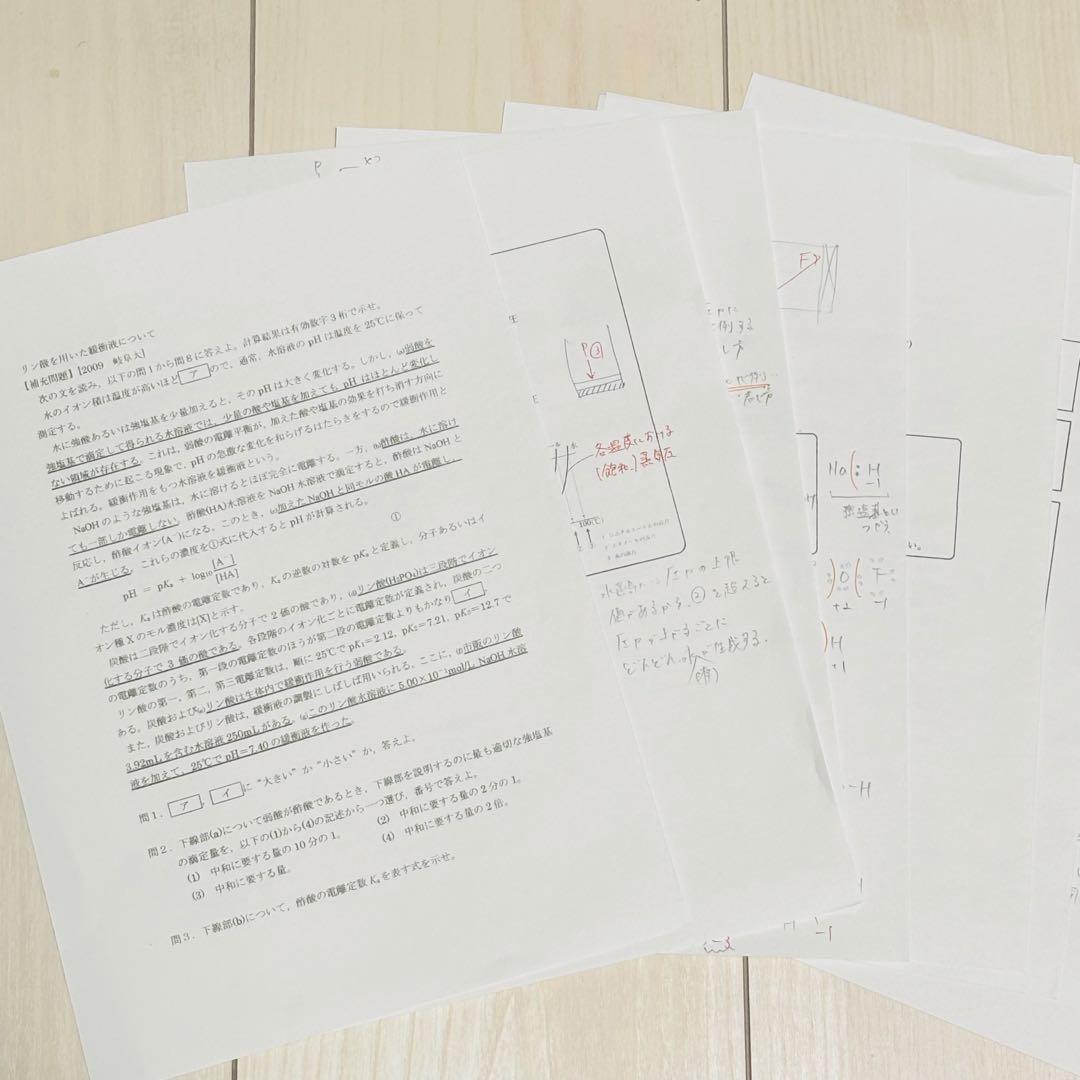 リン酸を用いた緩衝液について
【補充問題】[2009 岐阜大]
次の文を読み、以下の問1から問8に答えよ。計算結果は有効数字3桁で示せ。
水のイオン積は温度が高いほど ア ので、通常、水溶液の pH は温度を 25℃に保って
測定する。
水に強酸あるいは強塩基を少量加えると、その pH は大きく変化する。しかし、(a)弱酸を
強塩基で滴定して得られる水溶液では、少量の酸や塩基を加えても、pH はほとんど変化し
ない領域が存在する。これは、弱酸の電離平衡が、加えた酸や塩基の効果を打ち消す方向に
移動するために起こる現象で、pH の急激な変化を和らげるはたらきをするので緩衝作用と
よばれる。緩衝作用をもつ水溶液を緩衝液という。
NaOH のような強塩基は、水に溶けるとほぼ完全に電離する。一方、(b)酢酸は、水に溶け
ても一部しか電離しない。酢酸(HA)水溶液を NaOH 水溶液で滴定すると、酢酸は NaOH と
反応し、酢酸イオン(A⁻)になる。このとき、(c)加えた NaOH と同モルの酸 HA が電離し、
A⁻が生じる。これらの濃度を①式に代入すると pH が計算される。
pH = pKa + log10 [A⁻]/[HA] ①
ただし、Kaは酢酸の電離定数であり、Kaの逆数の対数を pKaと定義し、分子あるいはイ
オン種 X のモル濃度は[X]と示す。
炭酸は二段階でイオン化する分子で 2 価の酸であり、(d)リン酸(H₃PO₄)は三段階でイオン
化する分子で 3 価の酸である。各段階のイオン化ごとに電離定数が定義され、炭酸の二つ
の電離定数のうち、第一段の電離定数のほうが第二段の電離定数よりもかなり イ 。
リン酸の第一、第二、第三電離定数は、順に 25℃で pK₁=2.12, pK₂=7.21, pK₃=12.7 で
ある。炭酸および(e)リン酸は生体内で緩衝作用を行う弱酸である。
また、炭酸およびリン酸は、緩衝液の調製にしばしば用いられる。ここに、(f)市販のリン酸
3.92mL を含む水溶液 250mL がある。(g)このリン酸水溶液に 5.00×10⁻¹mol/L NaOH 水溶
液を加えて、25℃で pH=7.40 の緩衝液を作った。
問1. ア , イ に "大きい" か "小さい" か、答えよ。
問2. 下線部(a)について弱酸が酢酸であるとき、下線部を説明するのに最も適切な強塩基
の滴定量を、以下の(1)から(4)の記述から一つ選び、番号で答えよ。
(1) 中和に要する量の 10 分の 1。 (2) 中和に要する量の 2 分の 1。
(3) 中和に要する量。 (4) 中和に要する量の 2 倍。
問3. 下線部(b)について、酢酸の電離定数 Kaを表す式を示せ。
生
P ③
各温度における
(飽和)蒸気圧
100(℃)
圧力の上限
値があるから、②を超えると
圧力が上がるごとに
どんどん水が生成する.
(液)
に
例する
F
Na(: H
-1
強塩基とい
い。
)O( F
+2 -1
)H
+1
-H
-1